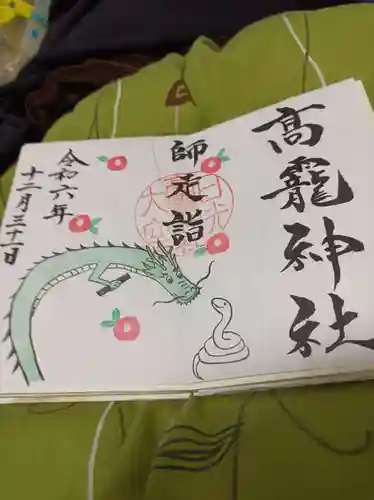 髙龗神社
師走詣
令和六年
十二月三十一日